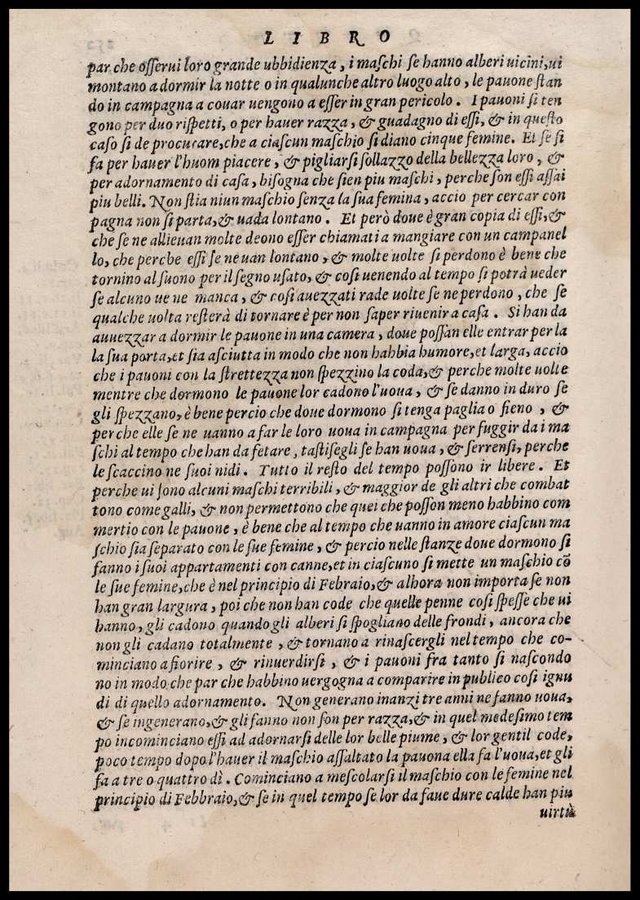 LIBRO
par che osserui loro grande ubbidienza, i maschi se hanno alberi uicini, ui
montano a dormir la notte o in qualunche altro luogo alto, le pauone stan
do in campagna a couar uengono a esser in gran pericolo. I pauoni si ten
gono per duo rispetti, o per hauer razza, & guadagno di essi, & in questo
caso si de procurare, che a ciascun maschio si diano cinque femine. Et se si
fa per hauer l'huom piacere, & pigliarsi sollazzo della bellezza loro, &
per adornamento di casa, bisogna che sien piu maschi, perche son essi assai
piu belli. Non stia niun maschio senza la sua femina, accio per cercar con
pagna non si parta, & uada lontano. Et però doue è gran copia di essi, &
che se ne allieuan molte deono esser chiamati a mangiare con un campanel
lo, che perche essi se ne uan lontano, & molte uolte si perdono è bene che
tornino al suono per il segno usato, & cosi uenendo al tempo si potrà ueder
se alcuno ue ne manca, & cosi auezzati rade uolte se ne perdono, che se
qualche uolta resterà di tornare è per non saper riuenir a casa. Si han da
auuezzar a dormir le pauone in una camera, doue possan elle entrar per la
la sua porta, et sia asciutta in modo che non habbia humore, et larga, accio
che i pauoni con la strettezza non spezzino la coda, & perche molte uolte
mentre che dormono le pauone lor cadono l'uoua, & se danno in duro se
gli spezzano, è bene percio che doue dormono si tenga paglia o fieno, &
perche elle se ne uanno a far le loro uoua in campagna per fuggir da i ma
schi al tempo che han da fetare, tastisegli se han uoua, & serrensi, perche
le scaccino ne suoi nidi. Tutto il resto del tempo possono ir libere. Et
perche ui sono alcuni maschi terribili, & maggior de gli altri che combat
tono come galli, & non permettono che quei che posson meno habbino com
mertio con le pauone, è bene che al tempo che uanno in amore ciascun ma
schio sia separato con le sue femine, & percio nelle stanze doue dormono si
fanno i suoi appartamenti con canne, et in ciascuno si mette un maschio cō
le sue femine, che è nel principio di Febraio, & alhora non importa se non
han gran largura, poi che non han code che quelle penne cosi spesse che ui
hanno, gli cadono quando gli alberi si spogliano delle frondi, ancora che
non gli cadano totalmente, & tornano a rinascergli nel tempo che co-
minciano a fiorire, & rinuerdirsi, & i pauoni fra tanto si nascondo
no in modo che par che habbino uergogna a comparire in publico cosi ignu
di di quello adornamento. Non generano inanzi tre anni ne fanno uoua,
& se ingenerano, & gli fanno non son per razza, & in quel medesimo tem
po incominciano essi ad adornarsi delle lor belle piume, & lor gentil code,
poco tempo dopo l'hauer il maschio assaltato la pauona ella fa l'uoua, et gli
fa a tre o quattro dì. Cominciano a mescolarsi il maschio con le femine nel
principio di Febbraio, & se in quel tempo se lor da faue dure calde han piu
uirtù